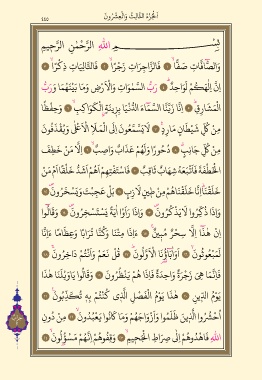 اَلْجُزْءُ الثَّالِثُ وَالْعِشْرُونَ ٤٤٥
بِسْمِ اللهِ الرَّحْمٰنِ الرَّحِيمِ
وَالصَّٓافَّاتِ صَفًّا فَالزَّاجِرَاتِ زَجْرًا فَالتَّالِيَاتِ ذِكْرًا
اِنَّ اِلٰهَكُمْ لَوَاحِدٌ رَبُّ السَّمٰوَاتِ وَالْاَرْضِ وَمَا بَيْنَهُمَا وَرَبُّ
الْمَشَارِقِ اِنَّا زَيَّنَّا السَّمَٓاءَ الدُّنْيَا بِزِينَةٍ الْكَوَاكِبِ وَحِفْظًا
مِنْ كُلِّ شَيْطَانٍ مَارِدٍ لَا يَسَّمَّعُونَ اِلَى الْمَلَاِ الْاَعْلٰى وَيُقْذَفُونَ
مِنْ كُلِّ جَانِبٍ دُحُورًا وَلَهُمْ عَذَابٌ وَاصِبٌ اِلَّا مَنْ خَطِفَ
الْخَطْفَةَ فَاَتْبَعَهُ شِهَابٌ ثَاقِبٌ فَاسْتَفْتِهِمْ اَهُمْ اَشَدُّ خَلْقًا اَمْ مَنْ
خَلَقْنَا اِنَّا خَلَقْنَاهُمْ مِنْ طِينٍ لَازِبٍ بَلْ عَجِبْتَ وَيَسْخَرُونَ
وَاِذَا ذُكِّرُوا لَا يَذْكُرُونَ وَاِذَا رَاَوْا اٰيَةً يَسْتَسْخِرُونَ وَقَالُٓوا
اِنْ هٰذَٓا اِلَّا سِحْرٌ مُبِينٌ ءَاِذَا مِتْنَا وَكُنَّا تُرَابًا وَعِظَامًا ءَاِنَّا
لَمَبْعُوثُونَ اَوَاٰبَٓاؤُ۬نَا الْاَوَّلُونَ قُلْ نَعَمْ وَاَنْتُمْ دَاخِرُونَ
فَاِنَّمَا هِيَ زَجْرَةٌ وَاحِدَةٌ فَاِذَا هُمْ يَنْظُرُونَ وَقَالُوا يَا وَيْلَنَا هٰذَا
يَوْمُ الدِّينِ هٰذَا يَوْمُ الْفَصْلِ الَّذِي كُنْتُمْ بِهِ تُكَذِّبُونَ
اُحْشُرُوا الَّذِينَ ظَلَمُوا وَاَزْوَاجَهُمْ وَمَا كَانُوا يَعْبُدُونَ مِنْ دُونِ
اللهِ فَاهْدُوهُمْ اِلٰى صِرَاطِ الْجَحِيمِ وَقِفُوهُمْ اِنَّهُمْ مَسْؤُ۫لُونَ